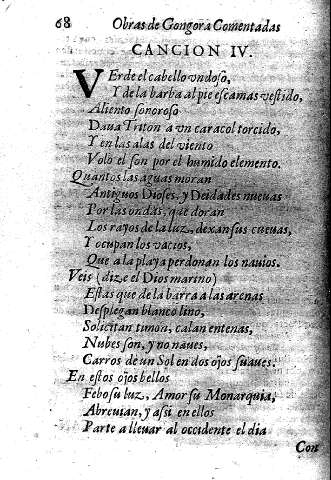 68 Obras de Gongora Comentadas
CANCION IV.
VErde el cabello vndoso,
Y de la barba al pie escamas vestido,
Aliento sonoroso
Daua Triton a vn caracol torcido,
Y en las alas del viento
Volò el son por el humido elemento.
Quantos las aguas moran
Antiguos Dioses, y Deidades nueuas
Por las ondas, que doran
Los rayos de la luz, dexan sus cueuas,
Y ocupan los vacios,
Que a la playa perdonan los nauios.
Veis (dize el Dios marino)
Estas que de la barra a las arenas
Desplegan blanco lino,
Solicitan timon, calan entenas,
Nubes son, y no naues,
Carros de un Sol en dos ojos suaues.
En estos ojos bellos
Febo su luz, Amor su Monarquia,
Abreuian, y assi en ellos
Parte a lleuar al occidente el dia
Con